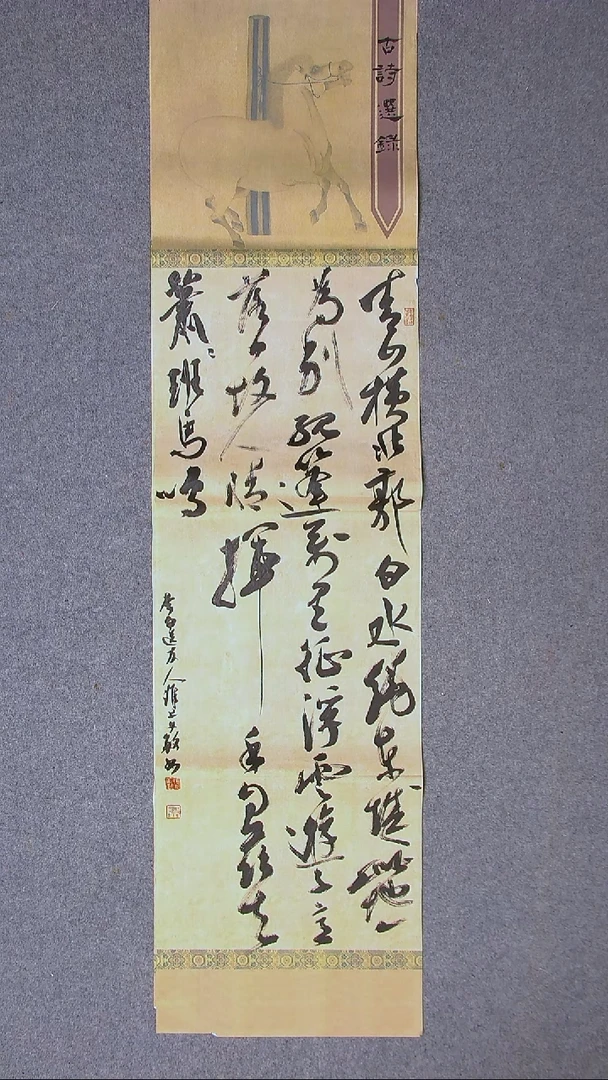 古詩選錄
青山橫北郭白水繞東城此地一
為別孤蓬萬里征浮雲遊子意
落日故人情揮手自茲去
蕭〻班馬鳴
李白送友人